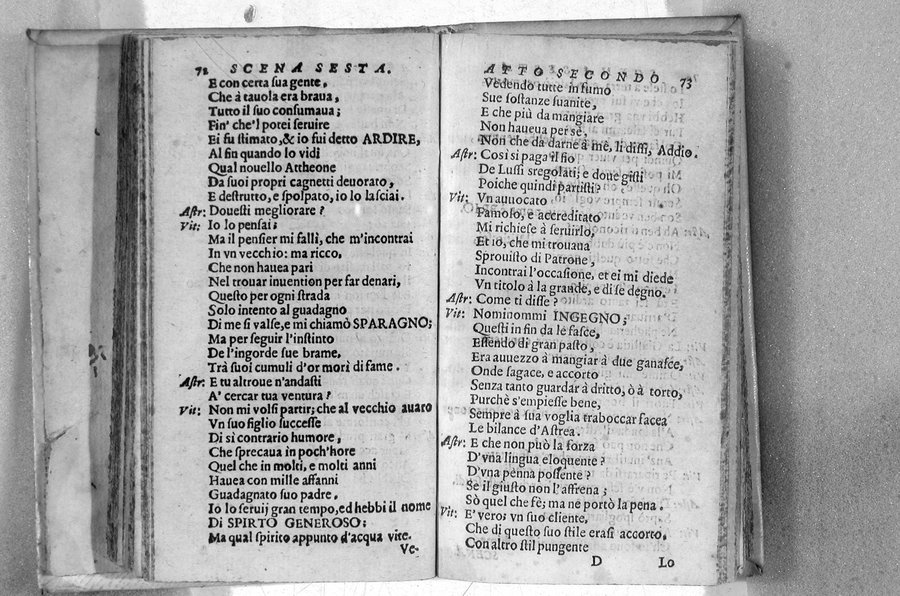 72 SCENA SESTA.
E con certa ſua gente,
Che à tauola era braua,
Tutto il ſuo conſumaua;
Fin' che'l potei ſeruire
Ei fu ſtimato,& io fui detto ARDIRE,
Al fin quando lo vidi
Qual nouello Attheone
Da ſuoi propri cagnetti deuorato,
E deſtrutto, e ſpolpato, io lo laſciai.
Aſtr: Doueſti megliorare?
Vit: Io lo penſai;
Ma il penſier mi falli, che m'incontrai
In vn vecchio: ma ricco,
Che non hauea pari
Nel trouar inuention per far denari,
Queſto per ogni ſtrada
Solo intento al guadagno
Di me ſi valſe,e mi chiamò SPARAGNO;
Ma per ſeguir l'inſtinto
De l'ingorde ſue brame,
Trà ſuoi cumuli d'or morì di fame.
Aſtr: E tu altroue n'andaſti
A' cercar tua ventura?
Vit: Non mi volſi partir; che al vecchio auaro
Vn ſuo figlio ſucceſſe
Di sì contrario humore,
Che ſprecaua in poch'hore
Quel che in molti, e molti anni
Hauea con mille affanni
Guadagnato ſuo padre.
Io lo ſeruij gran tempo,ed hebbi il nome
Di SPIRTO GENEROSO;
Ma qual ſpirito appunto d'acqua vite.
Ve-
ATTO SECONDO 73
Vedendo tutte in fumo
Sue ſoſtanze ſuanite,
E che più da mangiare
Non haueua per sè,
Non che da darne à mè, li diſſi, Addio.
Aſtr: Così ſi paga il fio
De Luſſi sregolati; e doue giſti
Poiche quindi partiſti?
Vit: Vn auuocato
Famoſo, e accreditato
Mi richieſe à ſeruirlo,
Et io, che mi trouaua
Sprouiſto di Patrone,
Incontrai l'occaſione, et ei mi diede
Vn titolo à la grande, e di ſe degno.
Aſtr: Come ti diſſe?
Vit: Nominommi INGEGNO;
Queſti in fin da le faſce,
Eſſendo di gran paſto,
Era auuezzo à mangiar à due ganaſce,
Onde ſagace, e accorto
Senza tanto guardar à dritto, ò à torto,
Purchè s'empieſſe bene,
Sempre à ſua voglia traboccar facea
Le bilance d'Aſtrea.
Aſtr: E che non può la forza
D'vna lingua eloquente?
D'vna penna poſſente?
Se il giuſto non l'affrena;
Sò quel che fè; ma ne portò la pena.
Vit: E' vero; vn ſuo cliente,
Che di queſto ſuo ſtile eraſi accorto,
Con altro ſtil pungente
D Lo